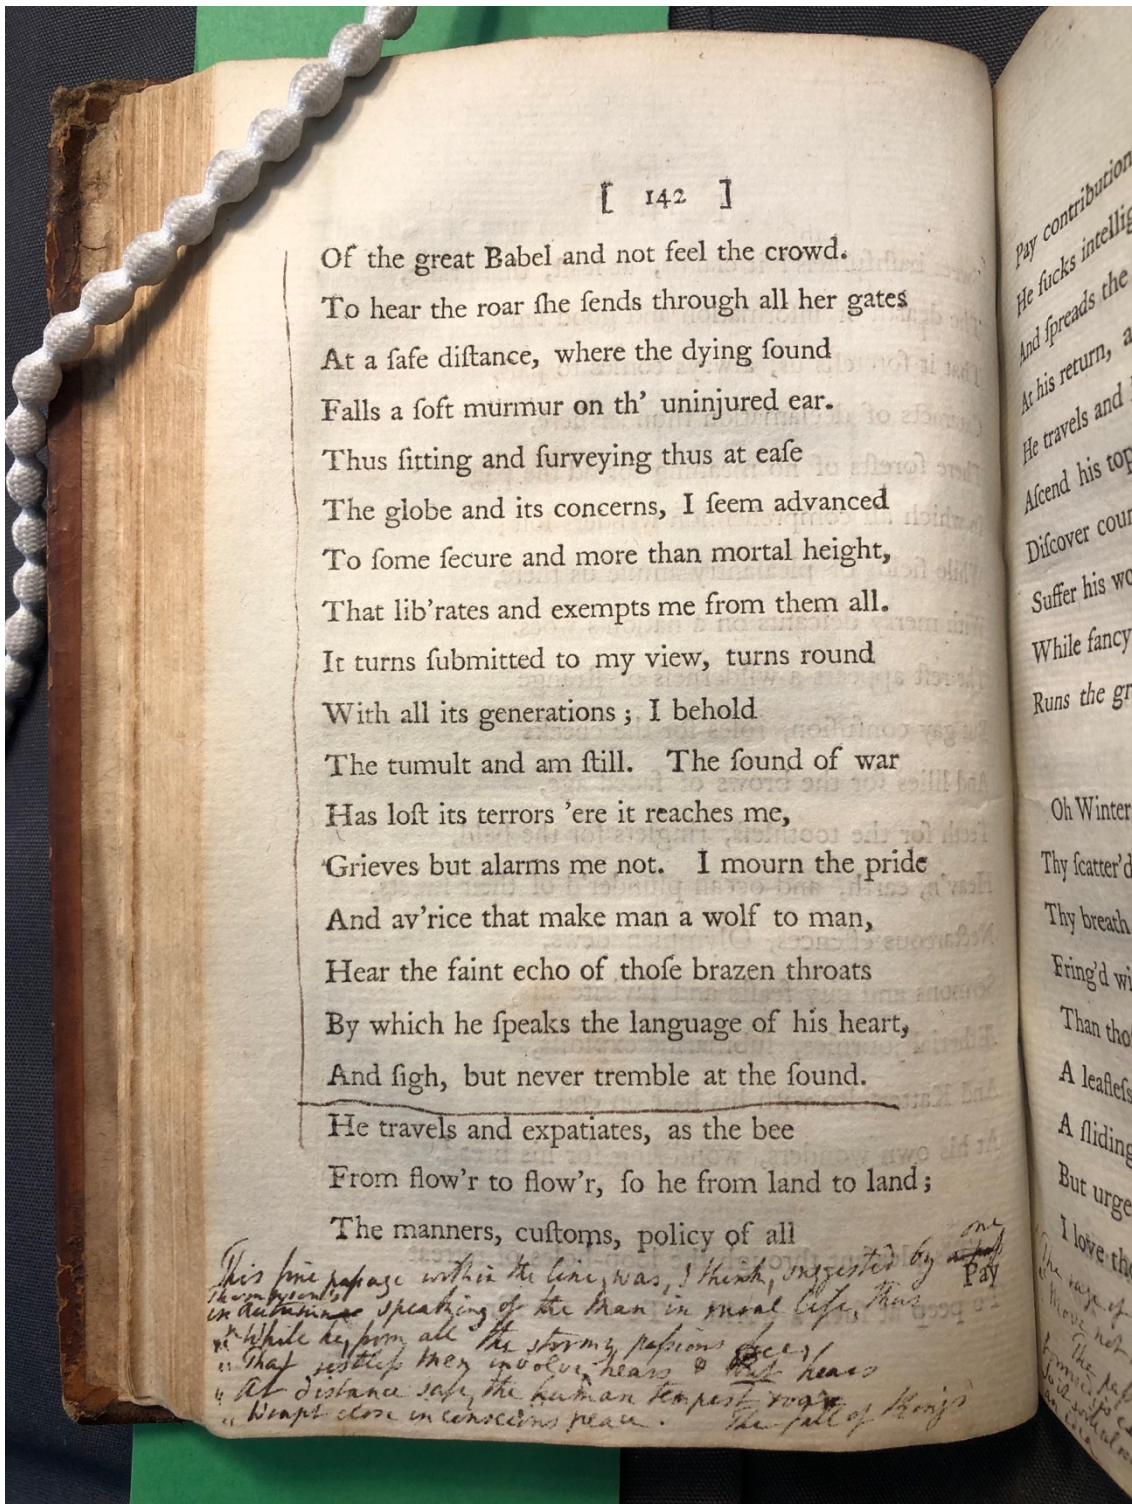 [ 142 ]
Of the great Babel and not feel the crowd.
To hear the roar ſhe ſends through all her gates
At a ſafe diſtance, where the dying ſound
Falls a ſoft murmur on th' uninjured ear.
Thus ſitting and ſurveying thus at eaſe
The globe and its concerns, I ſeem advanced
To ſome ſecure and more than mortal height,
That lib'rates and exempts me from them all.
It turns ſubmitted to my view, turns round
With all its generations ; I behold
The tumult and am ſtill. The ſound of war
Has loſt its terrors 'ere it reaches me,
Grieves but alarms me not. I mourn the pride
And av'rice that make man a wolf to man,
Hear the faint echo of thoſe brazen throats
By which he ſpeaks the language of his heart,
And ſigh, but never tremble at the ſound.
He travels and expatiates, as the bee
From flow'r to flow'r, ſo he from land to land ;
The manners, cuſtoms, policy of all
Pay
This fine paſsage within the line, was, I think, suggested by one
in Thompson's Autumn speaking of the Man in moral life, Thus
" While he, from all the stormy paſsions free,
" That restleſs men involve, hears & but hears
" At distance safe, the human tempest roar
" Wrapt close in conscious peace. The fall of Kings
Pay contribution
He ſucks intellig
And ſpreads the
At his return, a
He travels and
Aſcend his top
Diſcover coun
Suffer his wo
While fancy
Runs the gr
Oh Winter
Thy ſcatter'd
Thy breath
Fring'd wi
Than tho
A leafleſs
A ſliding
But urge
I love the
The rage of
" Move not
The paſ